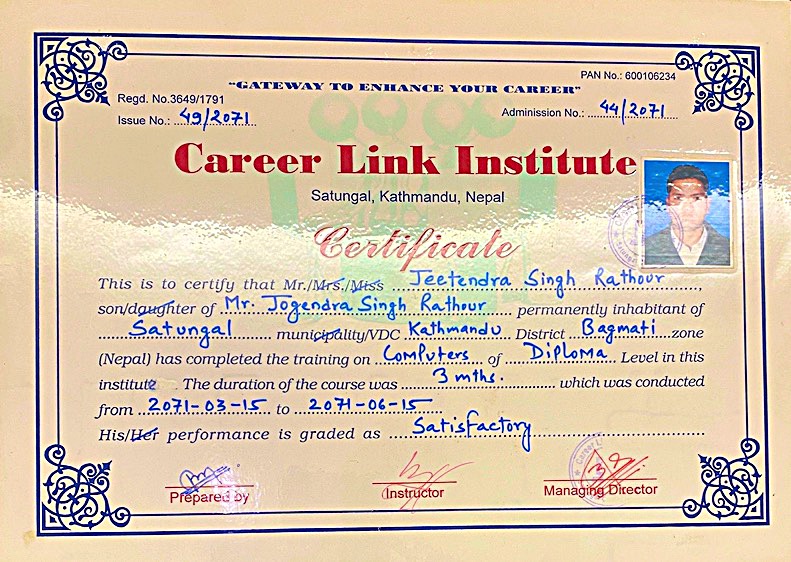 PAN No.: 600106234
"GATEWAY TO ENHANCE YOUR CAREER"
Regd. No.3649/1791
Issue No.: 49/2071
Admission No.: 44/2071
Career Link Institute
Satungal, Kathmandu, Nepal
Certificate
This is to certify that Mr./Mrs./Miss Jeetendra Singh Rathour,
son/daughter of Mr. Jogendra Singh Rathour permanently inhabitant of
Satungal municipality/VDC Kathmandu District Bagmati zone
(Nepal) has completed the training on Computers of Diploma Level in this
institute. The duration of the course was 3 mths. which was conducted
from 2071-03-15 to 2071-06-15
His/Her performance is graded as Satisfactory
Prepared by
Instructor
Managing Director